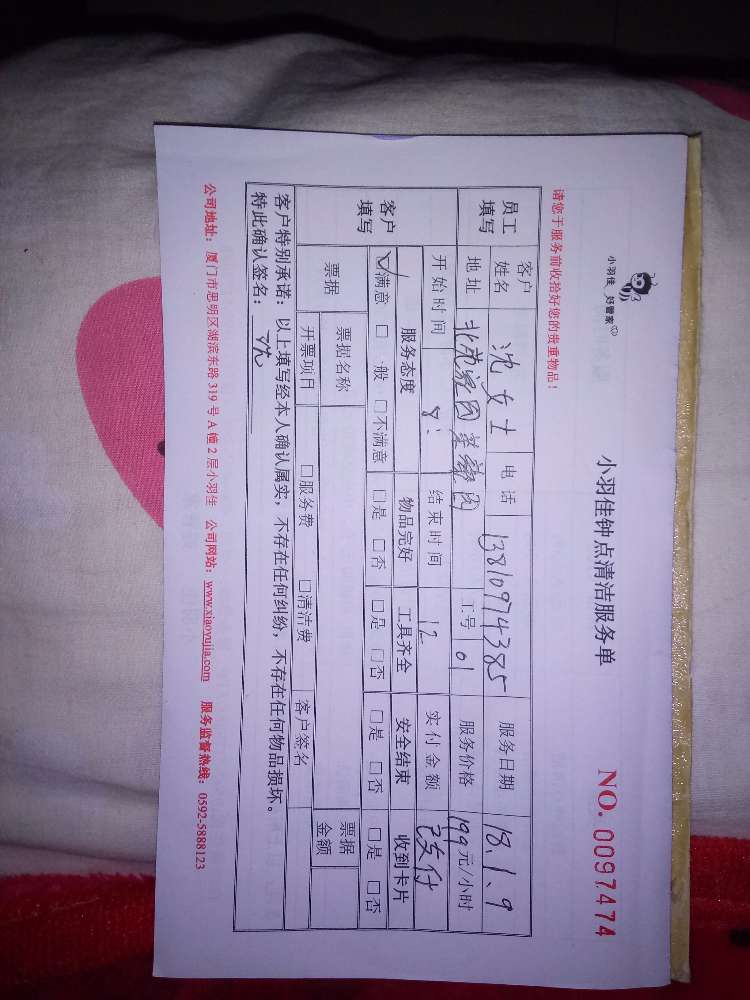 小羽佳 好管家
小羽佳钟点清洁服务单
NO. 0097474
请您于服务前收拾好您的贵重物品！
员工填写 客户姓名 沈女士 电话 13810974385 服务日期 18.1.9
地址 工号 01 服务价格 199元/小时
开始时间 8: 结束时间 12 实付金额 已支付
客户填写 服务态度 物品完好 工具齐全 安全结束 收到卡片
☑满意 □一般 □不满意 □是 □否 □是 □否 □是 □否 □是 □否
票据 票据名称 票据金额
开票项目 □服务费 □清洁费 客户签名
客户特别承诺：以上填写经本人确认属实，不存在任何纠纷，不存在任何物品损坏。
特此确认签名： 沈
公司地址：厦门市思明区湖滨东路319号A幢2层小羽佳 公司网站：www.xiaoyujia.com 服务监督热线：0592-5888123